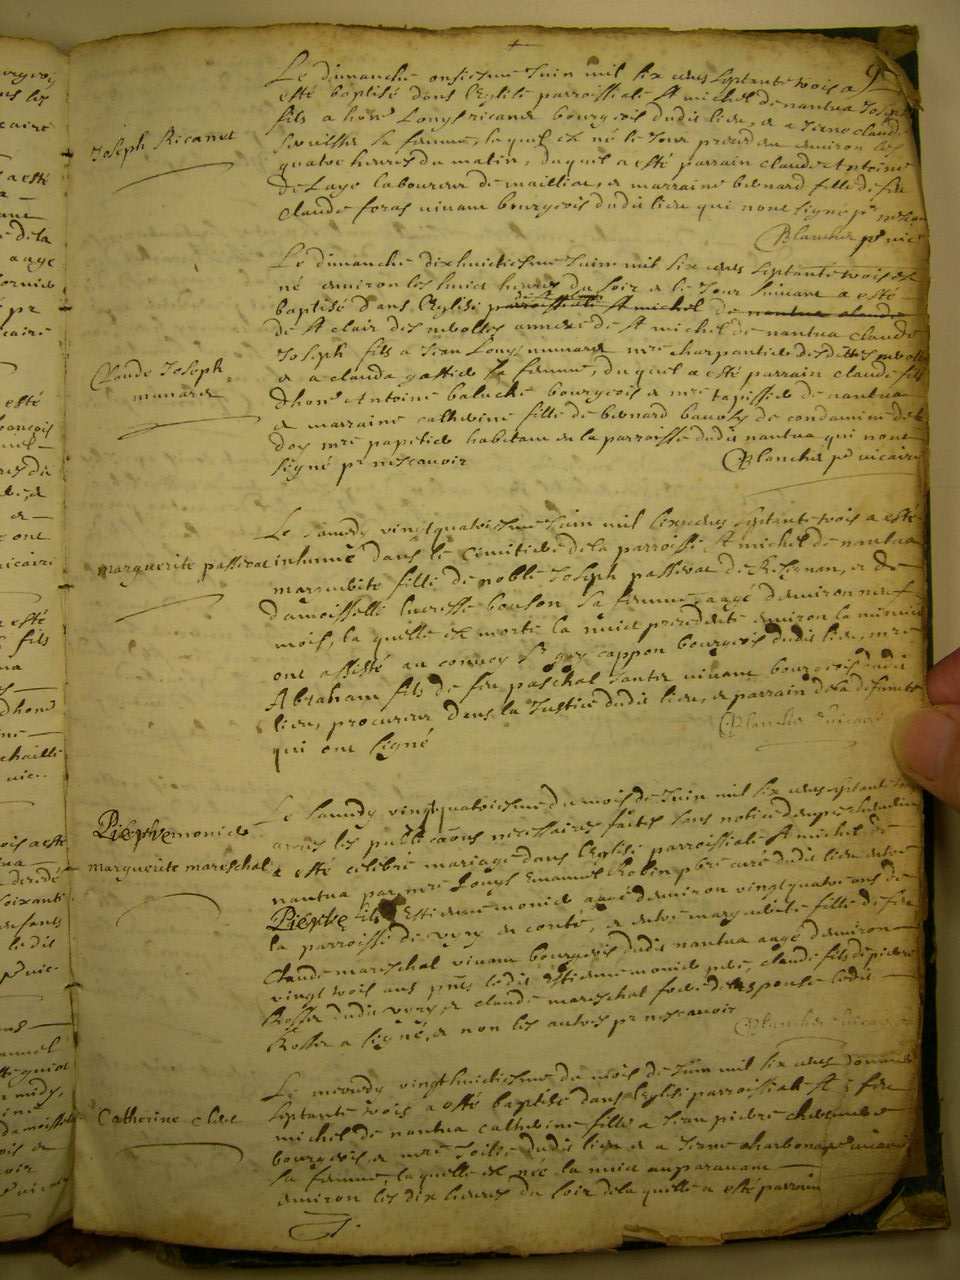 Joseph Ricanet
Le dimanche onsiesme Juin mil six cens septante trois a
esté baptisé dans l'Eglise parroissiale St michel de nantua Joseph
fils a hon^e Louys ricanet bourgeois dudit lieu, et a
sa femme, lequel est né le Jour precedent environ les
quatre heures du matin, duquel a esté parrain claude Antoine
de Laye laboureur de mailliat, et marraine bernard fille de feu
claude foras vivant bourgeois dudit lieu qui n'ont signé p^r nescavoir
Blanchet p^r vic
Claude Joseph
munard
Le dimanche dixhuictiesme Juin mil six cens septante trois est
né environ les huict heures du soir et le Jour suivant a esté
baptisé dans l'Eglise parroissiale St michel de nantua claude
de St clair des neolles annexe de St michel de nantua claude
Joseph fils a Jean Louys munard m^re charpantier des dittes
et a clauda sa femme, duquel a esté parrain claude fils
d'hon^e Antoine baluche bourgeois et m^re tapissier de nantua
et marraine catherine fille de bernard de condamine de la
doy m^re papetier habitant en la parroisse dudit nantua qui n'ont
signé p^r nescavoir
Blanchet p^r vicaire
marguerite passerat
Le samedy vingtquatriesme Juin mil six cens septante trois a esté
inhumé dans le cimitiere de la parroisse St michel de nantua
marguerite fille de noble Joseph passerat de et de
damoiselle lucresse bouson sa femme aagé d'environ neuf
mois, la quelle est morte la nuict precedente environ la minuict
ont assisté au convoy S^r guy cappon bourgeois dudit lieu, m^re
Abraham fils de feu paschal vivant bourgeois dudit
lieu, procureur dans la Justice dudit lieu, et parrain de la defuncte
qui ont signé
Blanchet vicaire
Pierre monier
marguerite mareschal
Le samedy vingtquatriesme du mois de Juin mil six cens septante trois
apres les publicaõns necessaires faites sans notice d'empeschement
a esté celebré mariage dans l'Eglise parroissiale St michel de
nantua par m^re Louys Emanuel Robin p^bre curé dudit lieu entre
Pierre fils Estienne monier aagé d'environ vingtquatre ans de
la parroisse de viry en conté, et entre marguerite fille de feu
Claude mareschal vivant bourgeois dudit nantua aagé d'environ
vingt trois ans p^ns ledit Estienne monier pere, claude fils de pierre
Rosset dudit viry, et claude mareschal frere de l'espouse ledit
Rosset a signé, et non les autres p^r nescavoir
Blanchet vicaire
Catherine
Le mercredy vingthuictiesme du mois de Juin mil six cens
septante trois a esté baptisé dans l'Eglise parroissiale St
michel de nantua catherine fille a Jean pierre
bourgeois et m^re dudit lieu et a
sa femme, laquelle est née la nuict auparavant
environ les dix heures du soir de la quelle a esté parrain